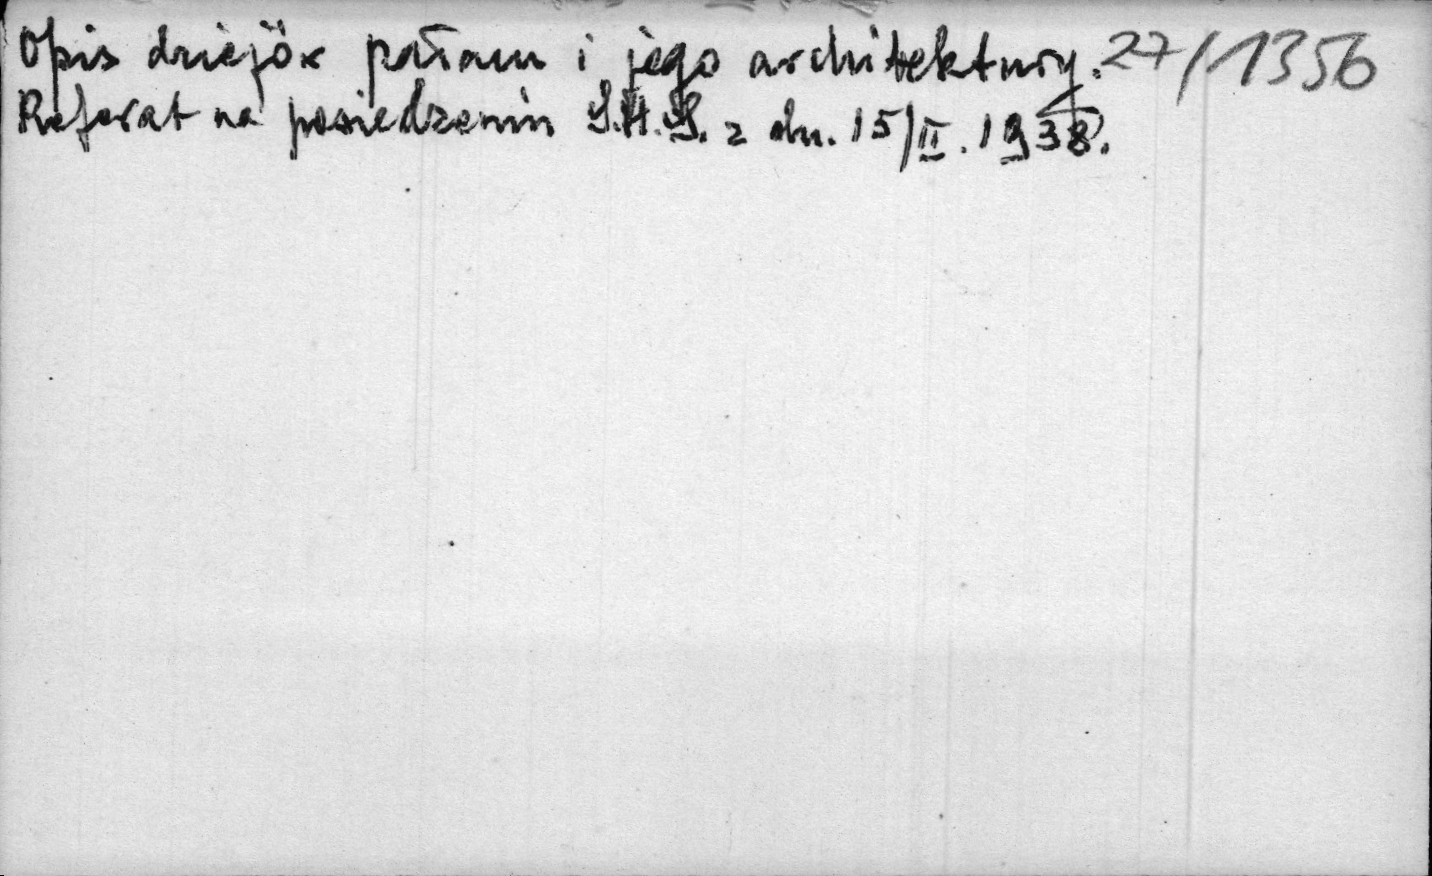 Opis dziejów pałacu i jego architektury. 27/1356
Referat na posiedzeniu S.H.S. z dn. 15/II. 1938.